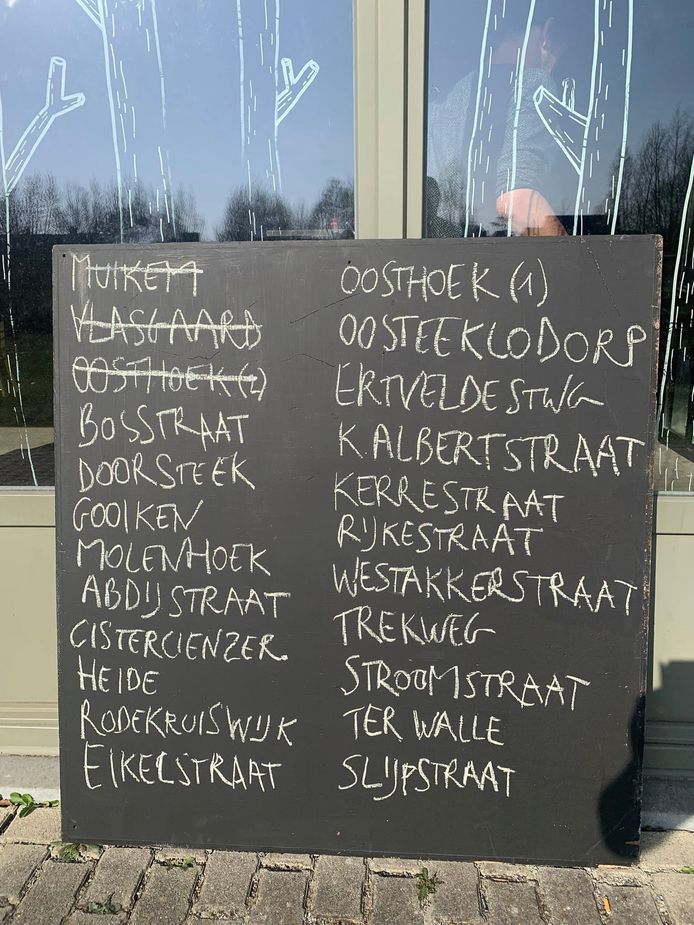 MUIKEM
VLASGAARD
OOSTHOEK (2)
BOSSTRAAT
DOORSTEEK
GOOIKEN
MOLENHOEK
ABDIJSTRAAT
CISTERCIENZER.
HEIDE
RODEKRUISWIJK
EIKELSTRAAT
OOSTHOEK (1)
OOSTEEKLODORP
ERTVELDESTWG
K.ALBERTSTRAAT
KERRESTRAAT
RIJKESTRAAT
WESTAKKERSTRAAT
TREKWEG
STROOMSTRAAT
TER WALLE
SLIJPSTRAAT